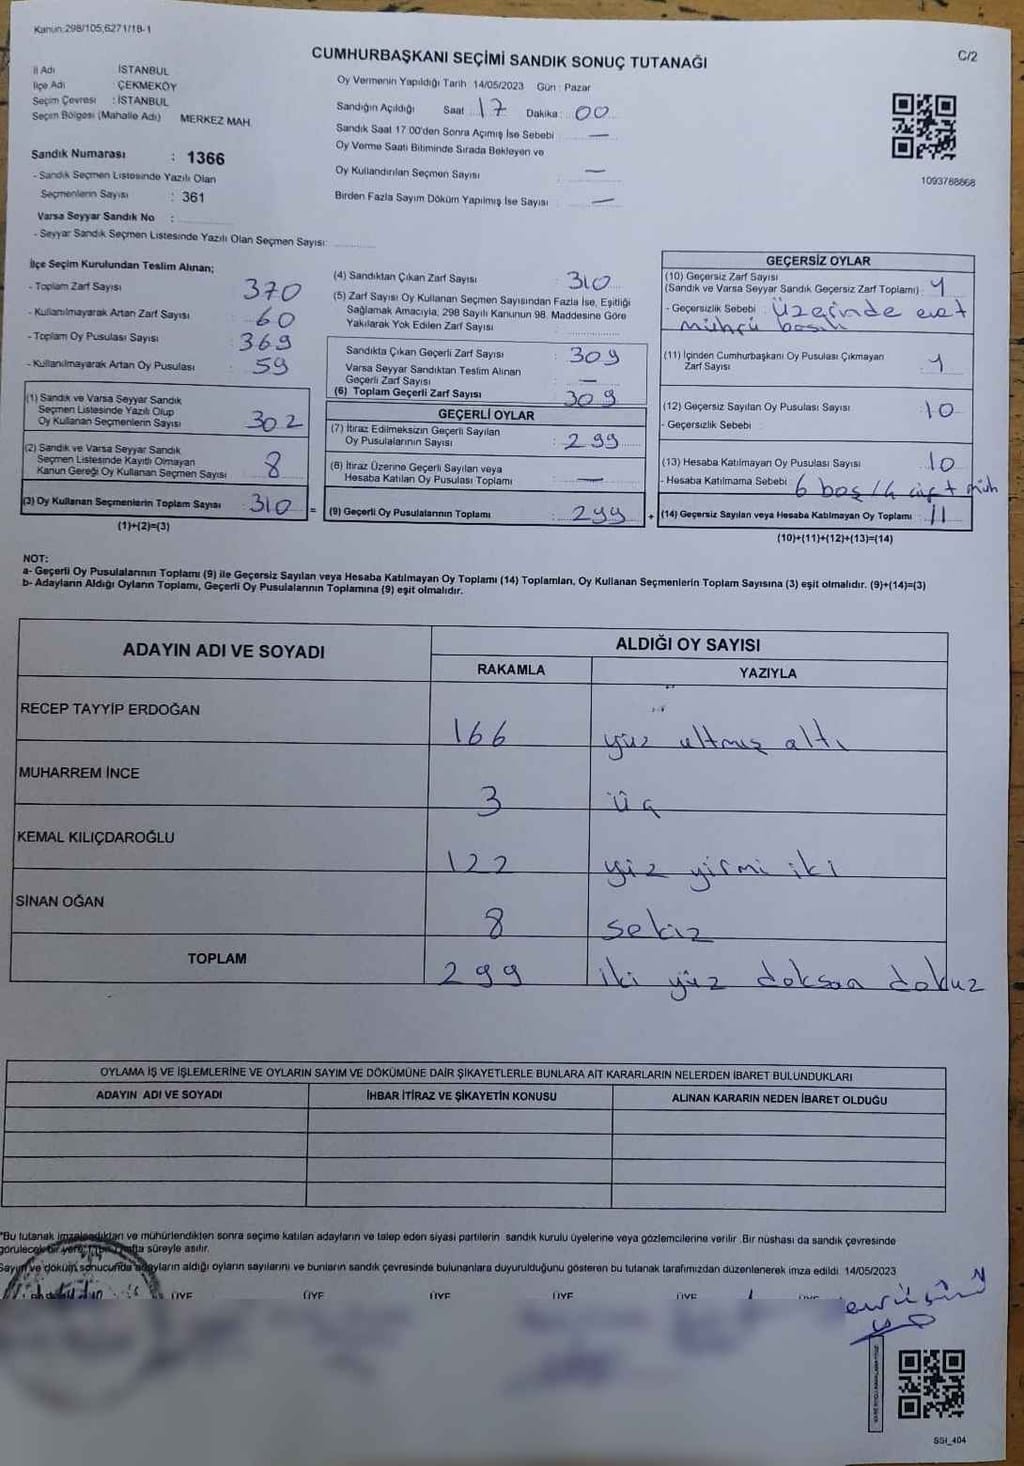 Kanun:298/105,6271/18-1
C/2
CUMHURBAŞKANI SEÇİMİ SANDIK SONUÇ TUTANAĞI
İl Adı İSTANBUL
İlçe Adı : ÇEKMEKÖY
Seçim Çevresi : İSTANBUL
Seçim Bölgesi (Mahalle Adı) MERKEZ MAH.
Sandık Numarası : 1366
- Sandık Seçmen Listesinde Yazılı Olan
Seçmenlerin Sayısı : 361
Varsa Seyyar Sandık No :
- Seyyar Sandık Seçmen Listesinde Yazılı Olan Seçmen Sayısı:
Oy Vermenin Yapıldığı Tarih 14/05/2023 Gün : Pazar
Sandığın Açıldığı Saat 17 Dakika : 00
Sandık Saat 17.00'den Sonra Açımış İse Sebebi —
Oy Verme Saati Bitiminde Sırada Bekleyen ve
Oy Kullandırılan Seçmen Sayısı —
Birden Fazla Sayım Döküm Yapılmış İse Sayısı —
1093788868
İlçe Seçim Kurulundan Teslim Alınan;
- Toplam Zarf Sayısı 370
- Kullanılmayarak Artan Zarf Sayısı 60
- Toplam Oy Pusulası Sayısı 369
- Kullanılmayarak Artan Oy Pusulası 59
(1) Sandık ve Varsa Seyyar Sandık
Seçmen Listesinde Yazılı Olup
Oy Kullanan Seçmenlerin Sayısı 302
(2) Sandık ve Varsa Seyyar Sandık
Seçmen Listesinde Kayıtlı Olmayan
Kanun Gereği Oy Kullanan Seçmen Sayısı 8
(3) Oy Kullanan Seçmenlerin Toplam Sayısı 310 =
(1)+(2)=(3)
(4) Sandıktan Çıkan Zarf Sayısı : 310
(5) Zarf Sayısı Oy Kullanan Seçmen Sayısından Fazla İse, Eşitliği
Sağlamak Amacıyla, 298 Sayılı Kanunun 98. Maddesine Göre
Yakılarak Yok Edilen Zarf Sayısı
Sandıkta Çıkan Geçerli Zarf Sayısı : 309
Varsa Seyyar Sandıktan Teslim Alınan
Geçerli Zarf Sayısı —
(6) Toplam Geçerli Zarf Sayısı 309
GEÇERLİ OYLAR
(7) İtiraz Edilmeksizin Geçerli Sayılan
Oy Pusulalarının Sayısı : 299
(8) İtiraz Üzerine Geçerli Sayılan veya
Hesaba Katılan Oy Pusulası Toplamı : —
(9) Geçerli Oy Pusulalarının Toplamı : 299 +
GEÇERSİZ OYLAR
(10) Geçersiz Zarf Sayısı
(Sandık ve Varsa Seyyar Sandık Geçersiz Zarf Toplamı) : 1
- Geçersizlik Sebebi : Üzerinde evet
mührü basılı
(11) İçinden Cumhurbaşkanı Oy Pusulası Çıkmayan
Zarf Sayısı 1
(12) Geçersiz Sayılan Oy Pusulası Sayısı : 10
- Geçersizlik Sebebi
(13) Hesaba Katılmayan Oy Pusulası Sayısı : 10
- Hesaba Katılmama Sebebi 6 boş / 4 çift müh
(14) Geçersiz Sayılan veya Hesaba Katılmayan Oy Toplamı : 11
(10)+(11)+(12)+(13)=(14)
NOT:
a- Geçerli Oy Pusulalarının Toplamı (9) ile Geçersiz Sayılan veya Hesaba Katılmayan Oy Toplamı (14) Toplamları, Oy Kullanan Seçmenlerin Toplam Sayısına (3) eşit olmalıdır. (9)+(14)=(3)
b- Adayların Aldığı Oyların Toplamı, Geçerli Oy Pusulalarının Toplamına (9) eşit olmalıdır.
ADAYIN ADI VE SOYADI
ALDIĞI OY SAYISI
RAKAMLA YAZIYLA
RECEP TAYYİP ERDOĞAN 166 yüz altmış altı
MUHARREM İNCE 3 üç
KEMAL KILIÇDAROĞLU 122 yüz yirmi iki
SİNAN OĞAN 8 sekiz
TOPLAM 299 iki yüz doksan dokuz
OYLAMA İŞ VE İŞLEMLERİNE VE OYLARIN SAYIM VE DÖKÜMÜNE DAİR ŞİKAYETLERLE BUNLARA AİT KARARLARIN NELERDEN İBARET BULUNDUKLARI
ADAYIN ADI VE SOYADI İHBAR İTİRAZ VE ŞİKAYETİN KONUSU ALINAN KARARIN NEDEN İBARET OLDUĞU
"Bu tutanak imzalandıktan ve mühürlendikten sonra seçime katılan adayların ve talep eden siyasi partilerin sandık kurulu üyelerine veya gözlemcilerine verilir .Bir nüshası da sandık çevresinde
görülecek bir yere, bir hafta süreyle asılır.
Sayım ve döküm sonucunda adayların aldığı oyların sayılarını ve bunların sandık çevresinde bulunanlara duyurulduğunu gösteren bu tutanak tarafımızdan düzenlenerek imza edildi. 14/05/2023
ÜYE ÜYE ÜYE ÜYE ÜYE
SSI_404